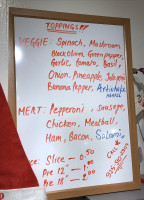 TOPPINGS
VEGGIE: Spinach, Mushroom,
Black Olives, Green pepper,
Garlic, Tomato, Basil,
Onion, Pineapple, Jalapeno
Banana Pepper, Artichoke
MEAT: Pepperoni, Sausage,
Chicken, Meatball,
Ham, Bacon, Salami
Slice — 0.50
Pie 12"
Pie 18"
CALL